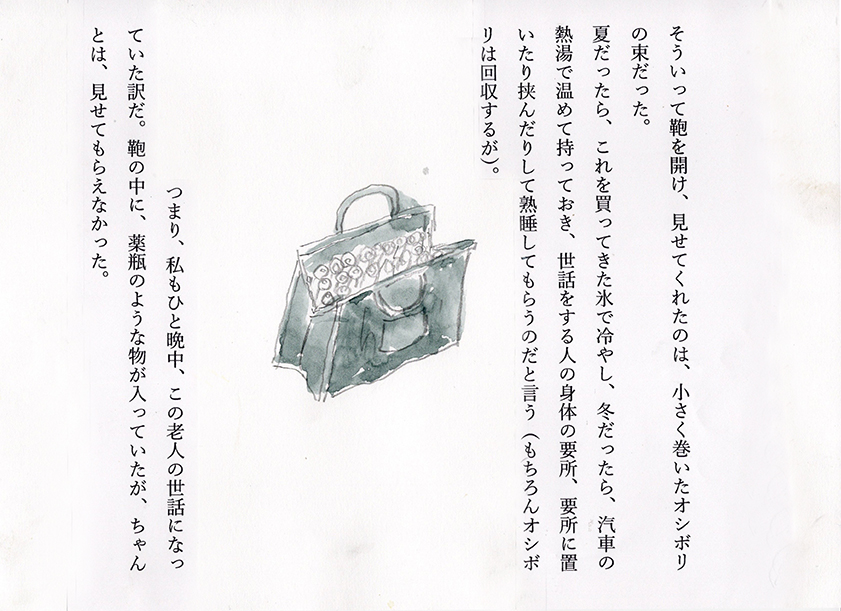 そういって鞄を開け、見せてくれたのは、小さく巻いたオシボリ
の束だった。
夏だったら、これを買ってきた氷で冷やし、冬だったら、汽車の
熱湯で温めて持っておき、世話をする人の身体の要所、要所に置
いたり挟んだりして熟睡してもらうのだと言う（もちろんオシボ
リは回収するが）。
つまり、私もひと晩中、この老人の世話になっ
ていた訳だ。鞄の中に、薬瓶のような物が入っていたが、ちゃん
とは、見せてもらえなかった。